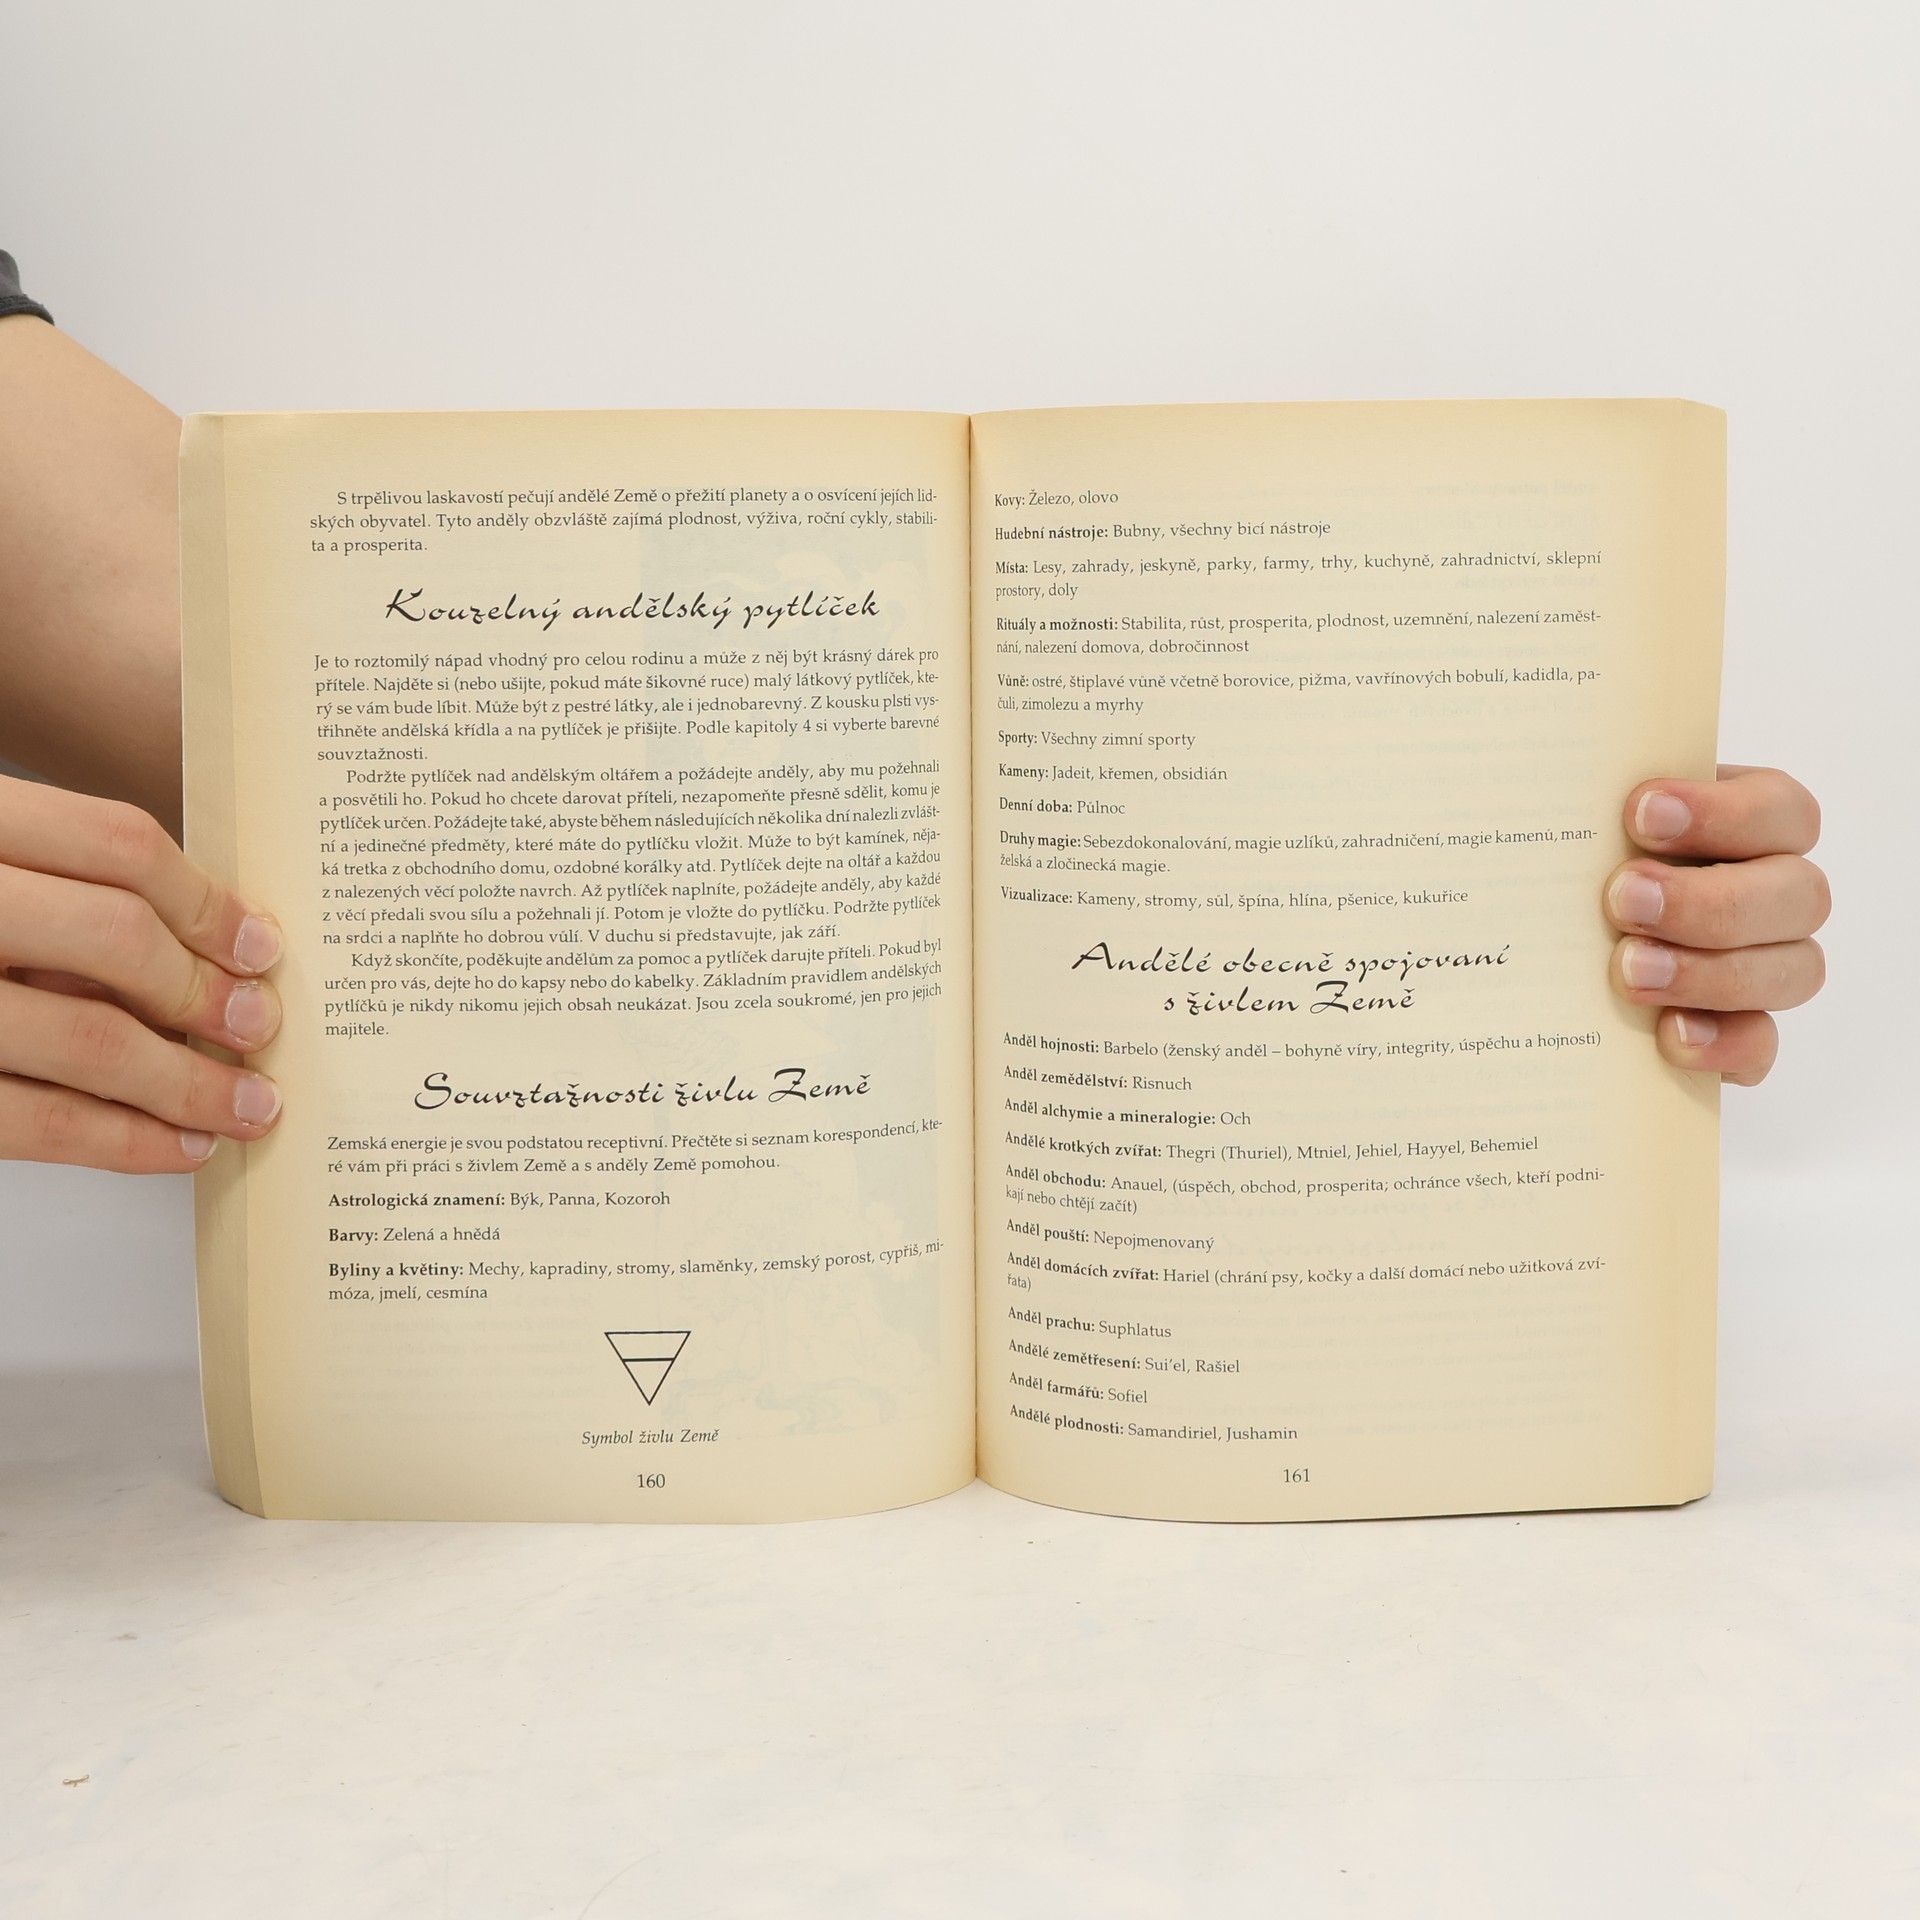 S trpělivou laskavostí pečují andělé Země o přežití planety a o osvícení jejích lid-
ských obyvatel. Tyto anděly obzvláště zajímá plodnost, výživa, roční cykly, stabili-
ta a prosperita.
Kouzelný andělský pytlíček
Je to roztomilý nápad vhodný pro celou rodinu a může z něj být krásný dárek pro
přítele. Najděte si (nebo ušijte, pokud máte šikovné ruce) malý látkový pytlíček, kte-
rý se vám bude líbit. Může být z pestré látky, ale i jednobarevný. Z kousku plsti vys-
třihněte andělská křídla a na pytlíček je přišijte. Podle kapitoly 4 si vyberte barevné
souvztažnosti.
Podržte pytlíček nad andělským oltářem a požádejte anděly, aby mu požehnali
a posvětili ho. Pokud ho chcete darovat příteli, nezapomeňte přesně sdělit, komu je
pytlíček určen. Požádejte také, abyste během následujících několika dní nalezli zvlášt-
ní a jedinečné předměty, které máte do pytlíčku vložit. Může to být kamínek, něja-
ká tretka z obchodního domu, ozdobné korálky atd. Pytlíček dejte na oltář a každou
z nalezených věcí položte navrch. Až pytlíček naplníte, požádejte anděly, aby každé
z věcí předali svou sílu a požehnali jí. Potom je vložte do pytlíčku. Podržte pytlíček
na srdci a naplňte ho dobrou vůlí. V duchu si představujte, jak září.
Když skončíte, poděkujte andělům za pomoc a pytlíček darujte příteli. Pokud byl
určen pro vás, dejte ho do kapsy nebo do kabelky. Základním pravidlem andělských
pytlíčků je nikdy nikomu jejich obsah neukázat. Jsou zcela soukromé, jen pro jejich
majitele.
Souvztažnosti živlu Země
Zemská energie je svou podstatou receptivní. Přečtěte si seznam korespondencí, kte-
ré vám při práci s živlem Země a s anděly Země pomohou.
Astrologická znamení: Býk, Panna, Kozoroh
Barvy: Zelená a hnědá
Byliny a květiny: Mechy, kapradiny, stromy, slaměnky, zemský porost, cypřiš, mi-
móza, jmelí, cesmína
Symbol živlu Země
160
Kovy: Železo, olovo
Hudební nástroje: Bubny, všechny bicí nástroje
Místa: Lesy, zahrady, jeskyně, parky, farmy, trhy, kuchyně, zahradnictví, sklepní
prostory, doly
Rituály a možnosti: Stabilita, růst, prosperita, plodnost, uzemnění, nalezení zaměst-
nání, nalezení domova, dobročinnost
Vůně: ostré, štiplavé vůně včetně borovice, pižma, vavřínových bobulí, kadidla, pa-
čuli, zimolezu a myrhy
Sporty: Všechny zimní sporty
Kameny: Jadeit, křemen, obsidián
Denní doba: Půlnoc
Druhy magie: Sebezdokonalování, magie uzlíků, zahradničení, magie kamenů, man-
želská a zločinecká magie.
Vizualizace: Kameny, stromy, sůl, špína, hlína, pšenice, kukuřice
Andělé obecně spojovaní
s živlem Země
Anděl hojnosti: Barbelo (ženský anděl – bohyně víry, integrity, úspěchu a hojnosti)
Anděl zemědělství: Risnuch
Anděl alchymie a mineralogie: Och
Andělé krotkých zvířat: Thegri (Thuriel), Mtniel, Jehiel, Hayyel, Behemiel
Anděl obchodu: Anauel, (úspěch, obchod, prosperita; ochránce všech, kteří podni-
kají nebo chtějí začít)
Anděl pouští: Nepojmenovaný
Anděl domácích zvířat: Hariel (chrání psy, kočky a další domácí nebo užitková zví-
řata)
Anděl prachu: Suphlatus
Andělé zemětřesení: Sui'el, Rašiel
Anděl farmářů: Sofiel
Andělé plodnosti: Samandiriel, Jushamin
161